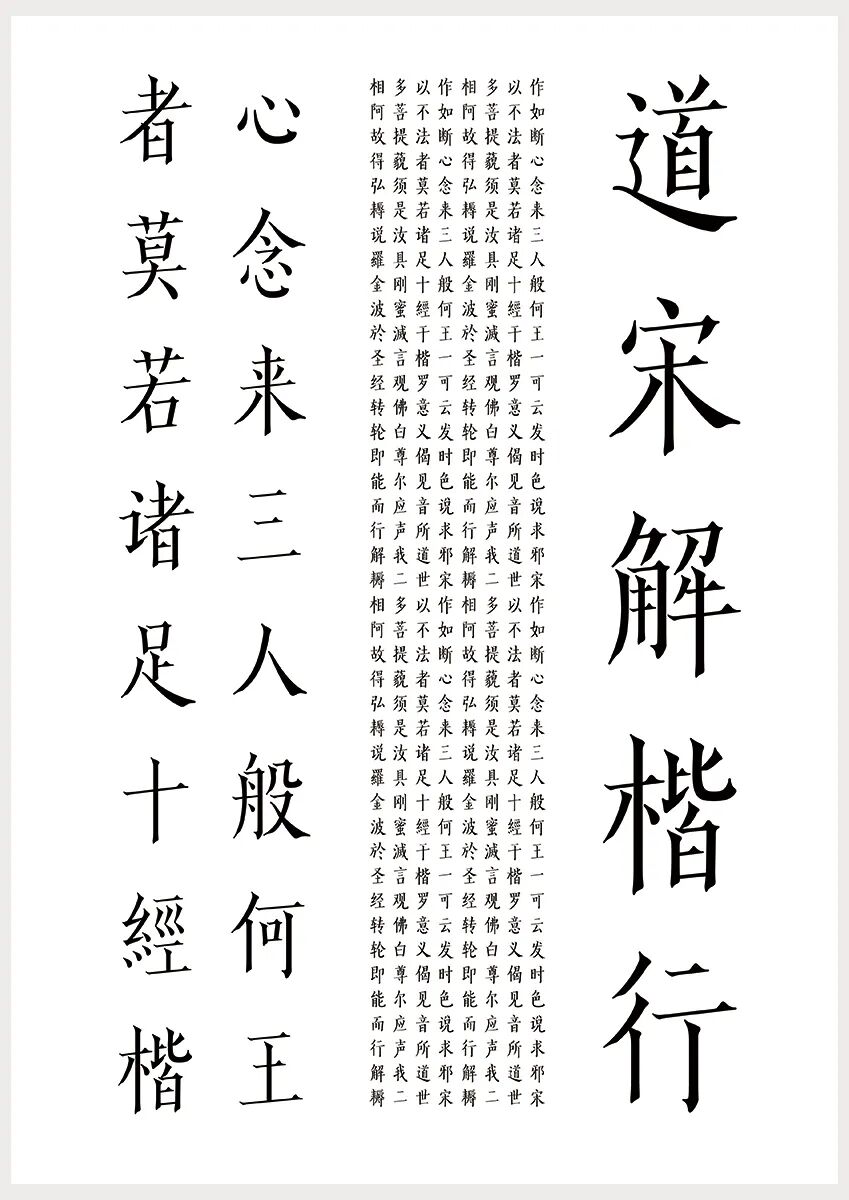 道宋解楷行
作如断心念来三人般何王一可云发时色说求邪宋作如断心念来三人般何王一可云发时色说求邪宋
以不法者莫若诸足十經干楷罗意义偈见音所道世以不法者莫若诸足十經干楷罗意义偈见音所道世
多菩提藐须是汝具刚蜜滅言观佛白尊尔应声我二多菩提藐须是汝具刚蜜滅言观佛白尊尔应声我二
相阿故得弘耨说羅金波於圣经转轮即能而行解耨相阿故得弘耨说羅金波於圣经转轮即能而行解耨
作如断心念来三人般何王一可云发时色说求邪宋作如断心念来三人般何王一可云发时色说求邪宋
以不法者莫若诸足十經干楷罗意义偈见音所道世以不法者莫若诸足十經干楷罗意义偈见音所道世
多菩提藐须是汝具刚蜜滅言观佛白尊尔应声我二多菩提藐须是汝具刚蜜滅言观佛白尊尔应声我二
相阿故得弘耨说羅金波於圣经转轮即能而行解耨相阿故得弘耨说羅金波於圣经转轮即能而行解耨
心念来三人般何王
者莫若诸足十經楷